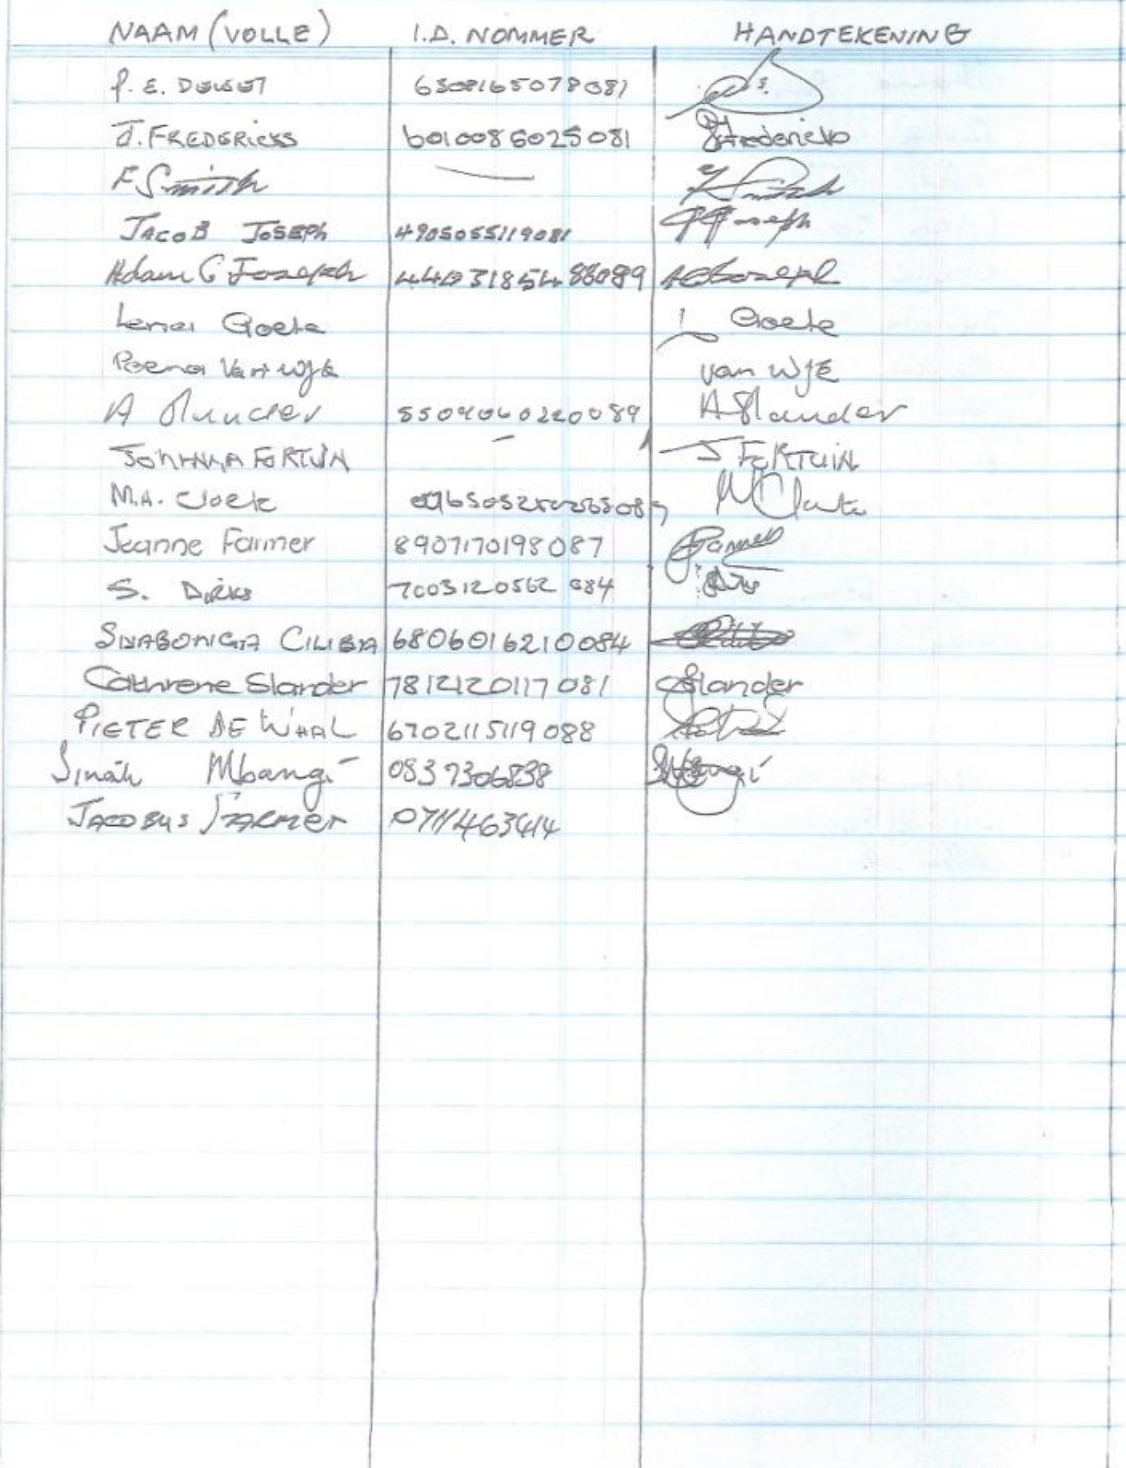 NAAM (VOLLE) I.D. NOMMER HANDTEKENING
P. E. 6508165078081 S.
J. FREDERICKS 6010085025081 JFredericks
F Smith
JACOB JOSEPH 4905055119081 Joseph
Adam C Joseph ACJoseph
Lenai Goete L Goete
van Wyk van Wyk
A 5504060220089 A Slander
JOHANNA FORTUIN J FORTUIN
M.A. Cloete M Cloete
Jeanne Farmer 8907170198087 Farmer
S. Dirks 7003120562 084
CILIBIA 6806016210084
Cathrene Slander 7812120117081 CSlander
PIETER DE WAAL 6702115119088
Sinah Mbangi 0837306838 Mbangi
JACOBUS FARMER 0711463414